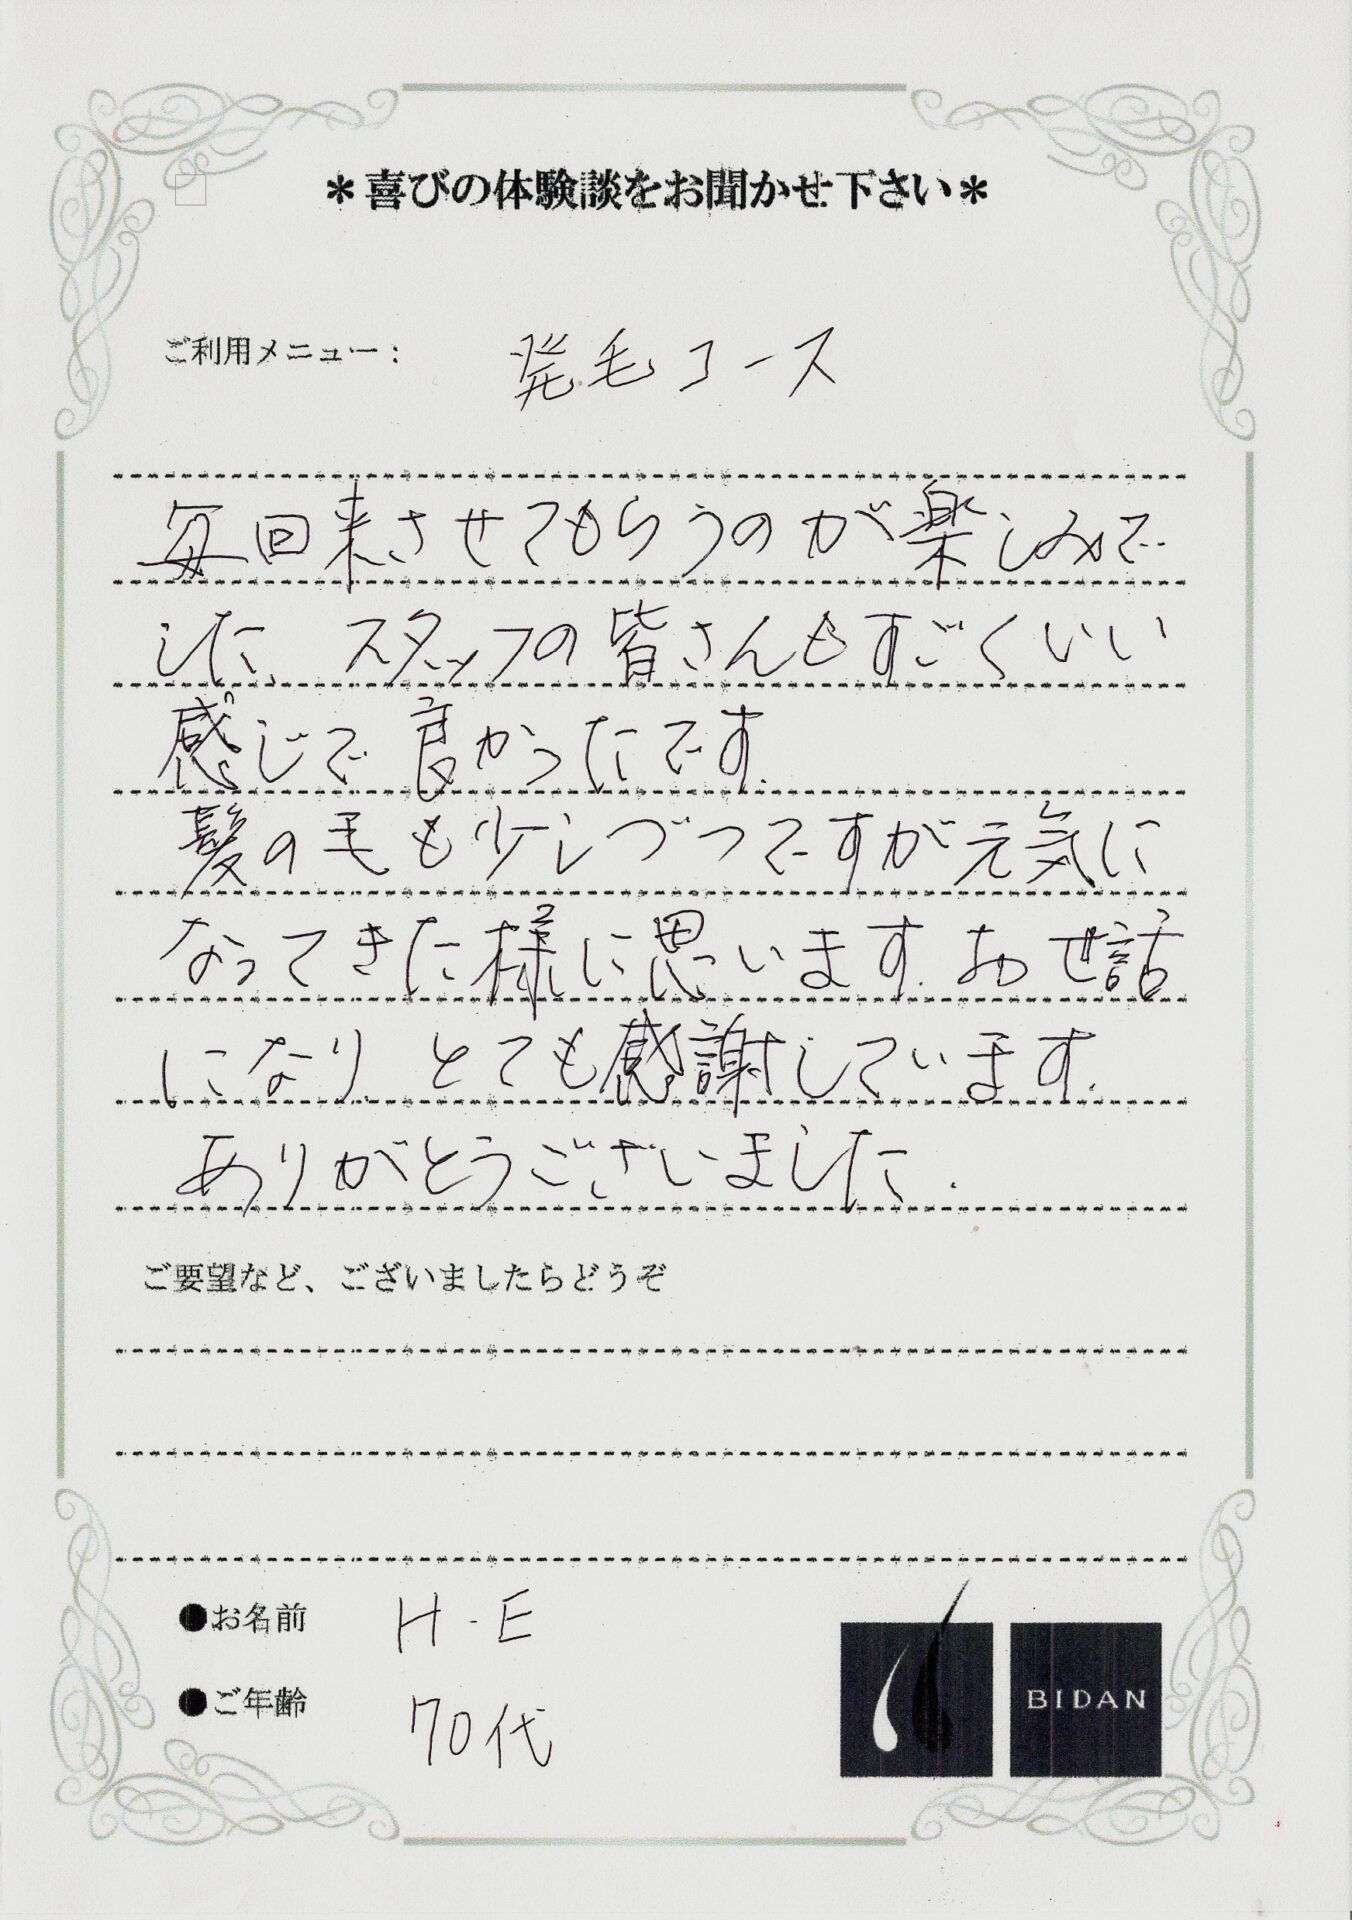 ＊喜びの体験談をお聞かせ下さい＊
ご利用メニュー： 発毛コース
毎回来させてもらうのが楽しみで
した、スタッフの皆さんもすごくいい
感じで良かったです.
髪の毛も少しづつですが元気に
なってきた様に思います. お世話
になり、とても感謝しています.
ありがとうございました.
ご要望など、ございましたらどうぞ
●お名前 H - E
●ご年齢 70代
BIDAN